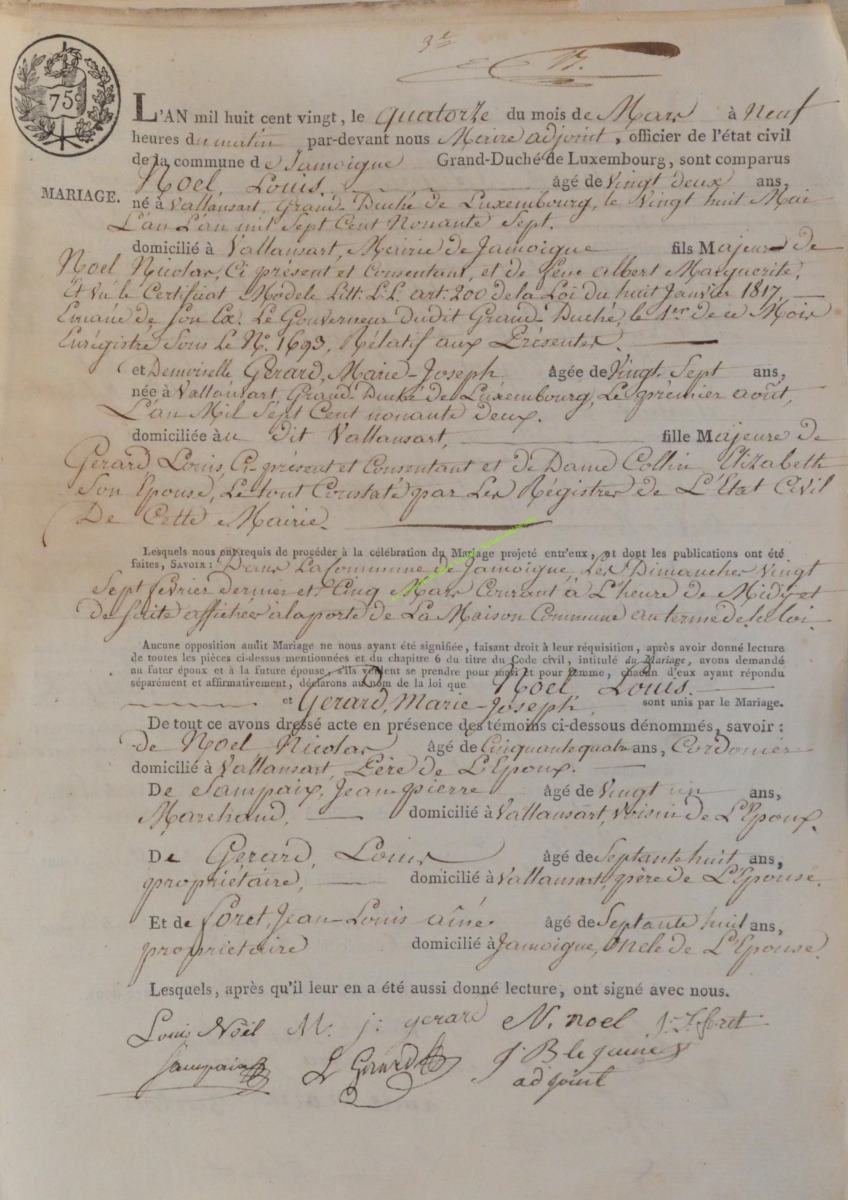 3e
75c
L'AN mil huit cent vingt, le quatorze du mois de Mars à Neuf
heures du matin par-devant nous Meire adjoint, officier de l'état civil
de la commune de Jamoigue Grand-Duché de Luxembourg, sont comparus
MARIAGE.
Noel, Louis. âgé de Vingt deux ans,
né à Vallansart, Grand Duché de Luxembourg, le Vingt huit Mai
L'an L'an mil Sept Cent Nonante Sept.
domicilié à Vallansart, Mairie de Jamoigue fils Majeur de
Noel Nicolas, Ci présent et Consentant, et de feue Albert Marguerite,
Et vu le Certificat Modele Litt. L.L. art. 200 de la Loi du huit Janvier 1817,
Emané de Son Ex. Le Gouverneur dudit Grand Duché, le 1er de ce Mois
Enrégistré Sous le No. 1693, Rélatif aux Présentes.
et Demoiselle Gerard, Marie-Joseph âgée de Vingt Sept ans,
née à Vallansart, Grand Duché de Luxembourg, Le prémier août,
L'an Mil Sept Cent nonante deux.
domiciliée au dit Vallansart, fille Majeure de
Gerard Louis, Ci présent et Consentant et de Dame Collin Elizabeth
Son Epouse, Le tout Constaté par Les Régistres de L'Etat Civil
De Cette Mairie.
Lesquels nous ont requis de procéder à la célébration du Mariage projeté entr'eux, et dont les publications ont été
faites, SAVOIR : Dans La Commune de Jamoigue, Les Dimanches Vingt
Sept fevrier dernier et Cinq Mars Courant à L'heure de Midi, et
de Suite affichées à la porte de La Maison Commune au terme de la loi
Aucune opposition audit Mariage ne nous ayant été signifiée, faisant droit à leur réquisition, après avoir donné lecture
de toutes les pièces ci-dessus mentionnées et du chapitre 6 du titre du Code civil, intitulé du Mariage, avons demandé
au futur époux et à la future épouse, s'ils veulent se prendre pour mari et pour femme, chacun d'eux ayant répondu
séparément et affirmativement, déclarons au nom de la loi que Noel Louis.
et Gerard, Marie-Joseph, sont unis par le Mariage.
De tout ce avons dressé acte en présence des témoins ci-dessous dénommés, savoir :
de Noel Nicolas âgé de Cinquante quatre ans, Cordonier
domicilié à Vallansart, Père de L'Epoux.
De Sampaix, Jean-pierre âgé de Vingt un ans,
Marchand, domicilié à Vallansart, Voisin de L'Epoux.
De Gerard, Louis âgé de Septante huit ans,
propriétaire, domicilié à Vallansart, père de L'Epouse.
Et de Foret, Jean-Louis aîné. âgé de Septante huit ans,
proprietaire domicilié à Jamoigue, Oncle de L'Epouse.
Lesquels, après qu'il leur en a été aussi donné lecture, ont signé avec nous.
Louis Noël M. j: gerard N. noel J. L. foret
Sampaix L Gerard J. B lejeune
adjoint